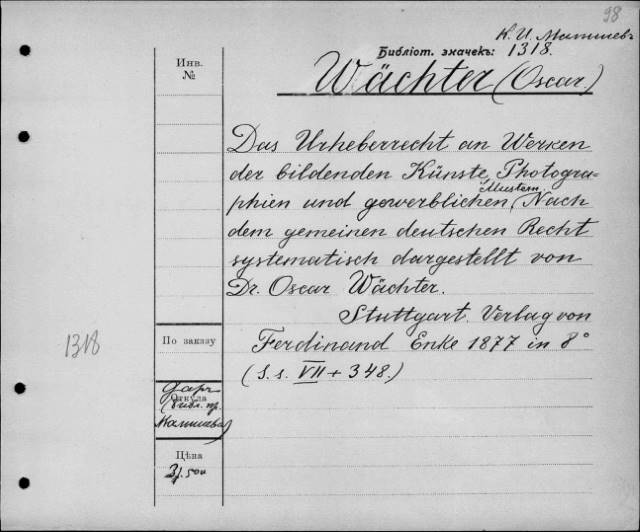 98
К. И. Малышевъ
Библіот. значекъ: 1318.
Wächter (Oscar.)
Инв.
№
Das Urheberrecht an Werken
der bildenden Künste, Photogra-
phien und gewerblichen Mustern. Nach
dem gemeinen deutschen Recht
systematisch dargestellt von
Dr. Oscar Wächter.
Stuttgart. Verlag von
Ferdinand Enke 1877 in 8°
(S. s. VII + 348.)
1318
По заказу
Откуда
даръ
библ. пр.
Малышева)
Цѣна